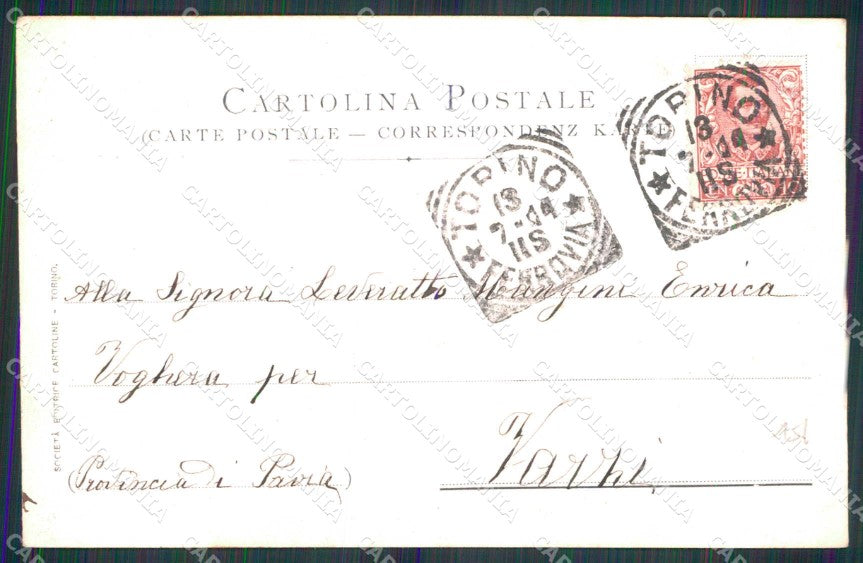 CARTOLINA POSTALE
(CARTE POSTALE — CORRESPONDENZ KARTE)
TORINO
13
7-04
11S
FERROVIA
TORINO
13
7-04
11S
FERROVIA
Alla Signora Leveratto Mangini Enrica
Voghera per
Varzi
(Provincia di Pavia)
SOCIETÀ EDITRICE CARTOLINE - TORINO.
CARTOLINOMANIA